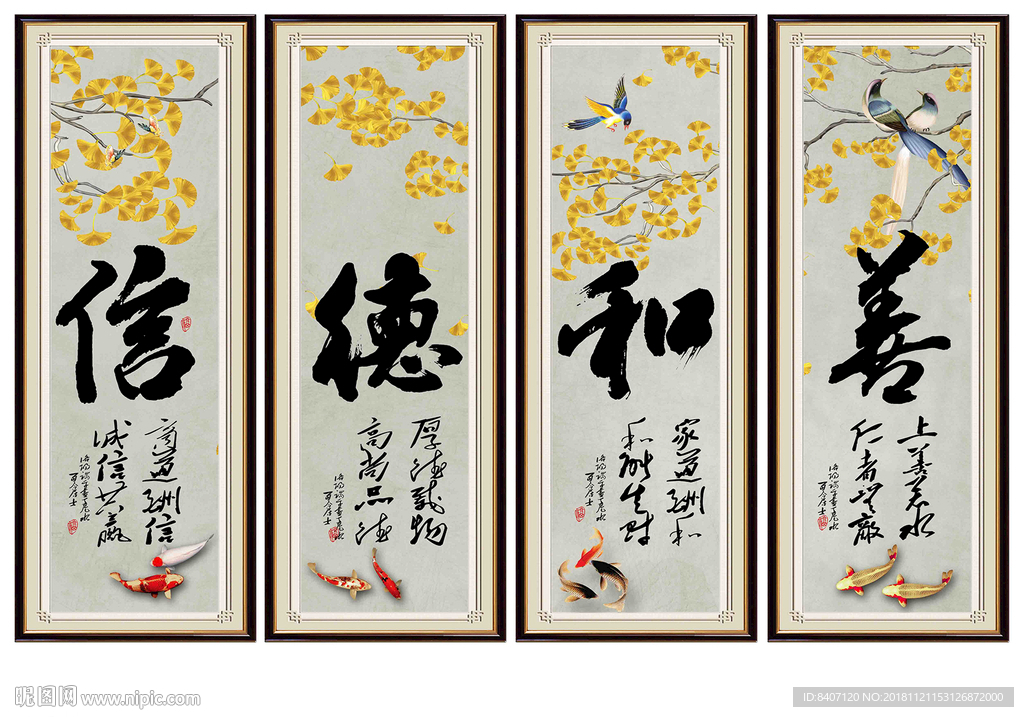 信
商道酬信
诚信共赢
德
厚德载物
高尚品德
和
家道酬和
和能生财
善
上善若水
仁者无敌
昵图网 www.nipic.com
ID:8407120 NO:20181121153126872000